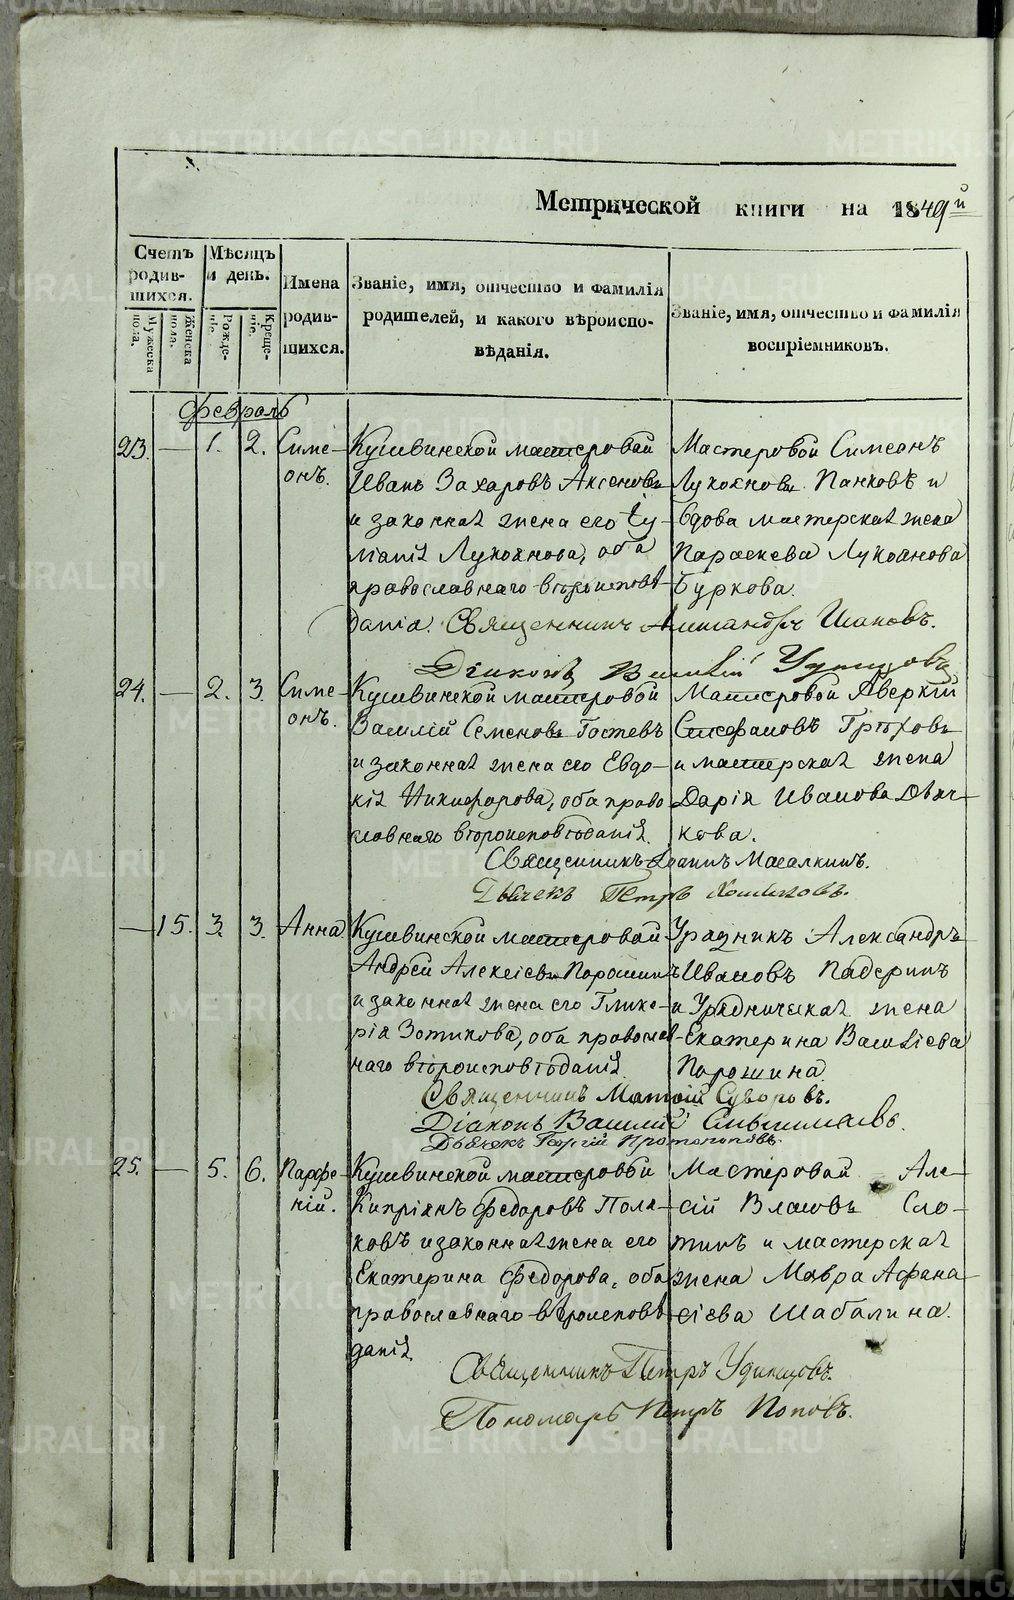 Метрической книги на 1849й
Счетъ родив-шихся.
Мужеска пола.
Женска пола.
Мѣсяцъ и день.
Рожде-нія.
Креще-нія.
Имена родив-шихся.
Званіе, имя, отчество и фамилія родителей, и какого вѣроиспо-вѣданія.
Званіе, имя, отчество и фамилія воспріемниковъ.
Февраль
23. — 1. 2. Симе-
онъ.
Кушвинской мастеровой
Иванъ Захаровъ Аксеновъ
и законная жена его
Лукоянова, оба
православнаго вѣроисповѣ-
данія.
Мастеровой Симеонъ
Лукояновъ Панковъ и
вдова мастерская жена
Параскева Лукоянова
Буркова.
Священникъ Александръ
Діаконъ Василій Удинцовъ
24. — 2. 3. Симе-
онъ.
Кушвинской мастеровой
Василій Семеновъ Гостевъ
и законная жена его Евдо-
кія Никифорова, оба право
славнаго вѣроисповѣданія.
Мастеровой Аверкій
Стефановъ Грѣховъ
и мастерская жена
Дарія Иванова Дьяч-
кова.
Священникъ Іоаннъ Масалкинъ.
Дьячекъ Петръ
— 15. 3. 3. Анна
Кушвинской мастеровой
Андрей Алексіевъ Порошинъ
и законная жена его Глике-
рія Зотикова, оба правосла-
наго вѣроисповѣданія.
Урядникъ Александръ
Ивановъ Падеринъ
и Урядническая жена
Екатерина Василіева
Порошина
Священникъ Матѳій Суворовъ.
Діаконъ Василій
Дьячекъ Георгій Протопоповъ.
25. — 5. 6. Парфе-
ній.
Кушвинской мастеровой
Кипріянъ Федоровъ Поля-
ковъ и законная жена его
Екатерина Федорова, оба
православнаго вѣроисповѣ-
данія
Мастеровой Але-
сій Власовъ Сло-
тинъ и мастерская
жена Мавра Афана-
сіева Шабалина.
Священникъ Петръ Удинцовъ.
Пономарь Петръ Поповъ.
METRIKI.GASO-URAL.RU